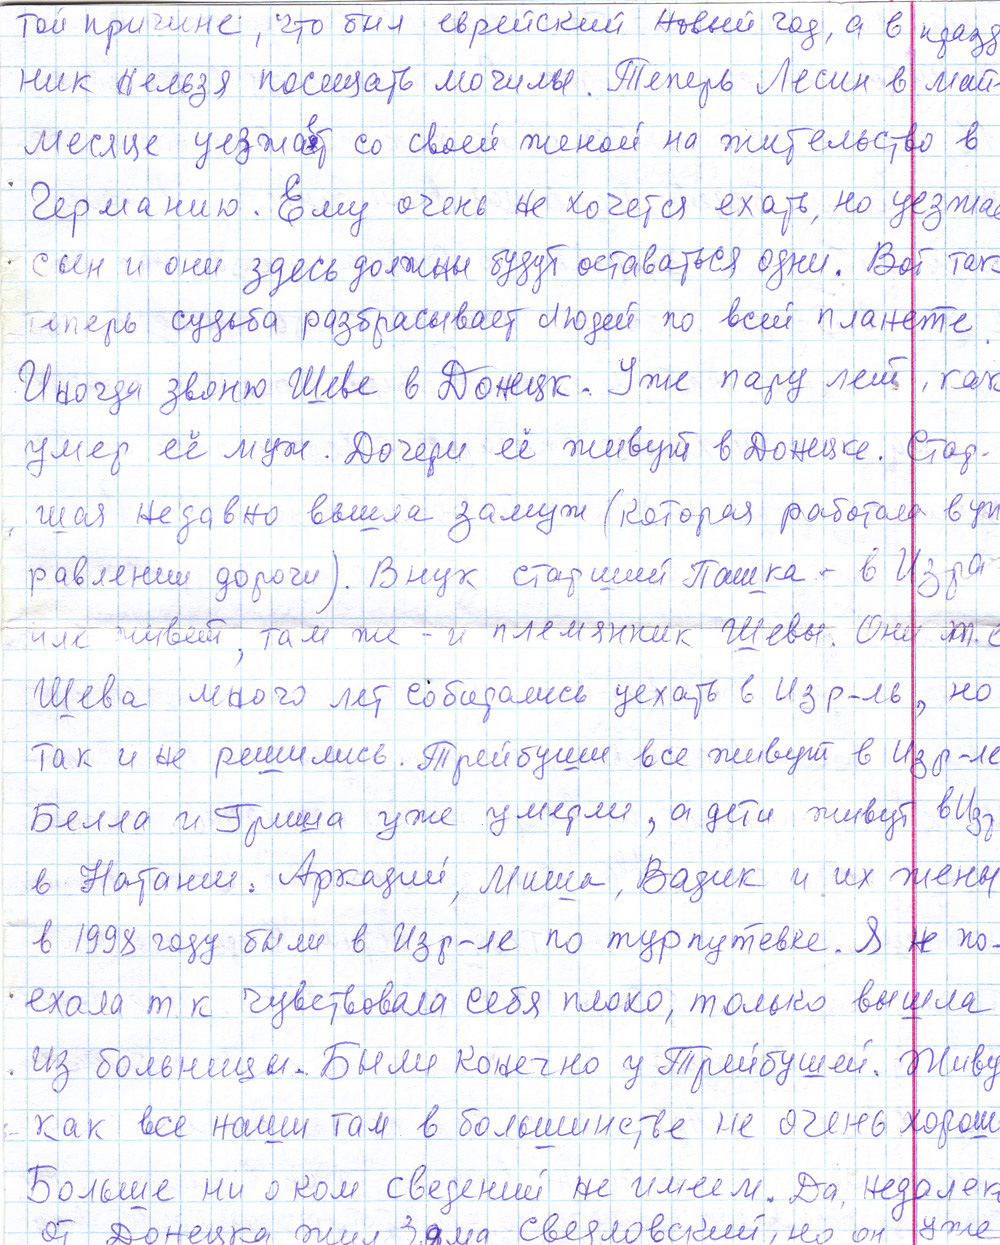 той причине, что был еврейский Новый год, а в празд
ник нельзя посещать могилы. Теперь Лесин в май-
месяце уезжает со своей женой на жительство в
Германию. Ему очень не хочется ехать, но уезжае
сын и они здесь должны будут оставаться одни. Вот так
теперь судьба разбрасывает людей по всей планете.
Иногда звоню Шеве в Донецк. Уже пару лет, как
умер её муж. Дочери её живут в Донецке. Стар-
шая недавно вышла замуж (которая работала в уп
равлении дороги). Внук старший Пашка - в Изра
иле живет, там же - и племянник Шевы. Они т.е
Шева много лет собирались уехать в Изр-ль, но
так и не решились. Трейбуши все живут в Изр-ле
Белла и Гриша уже умерли, а дети живут в Изр
в Натании. Аркадий, Миша, Вадик и их жены
в 1998 году были в Изр-ле по турпутевке. Я не по-
ехала т к чувствовала себя плохо, только вышла
из больницы. Были конечно у Трейбушей. Живу
как все наши там в большинстве не очень хорош
Больше ни о ком сведений не имеем. Да, недалек
от Донецка жил Зяма Свердловский, но он уже